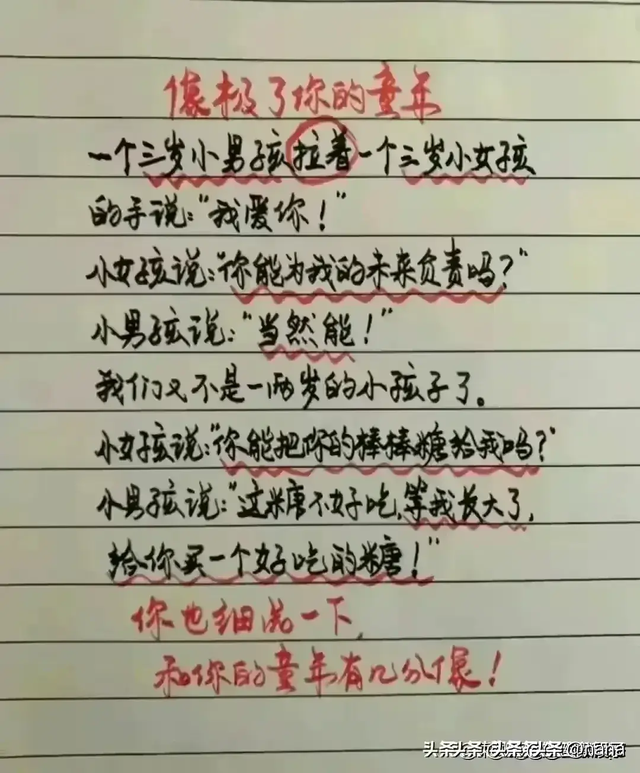 像极了你的童年
一个三岁小男孩拉着一个三岁小女孩
的手说:"我爱你!"
小女孩说:"你能为我的未来负责吗?"
小男孩说:"当然能!"
我们又不是一两岁的小孩子了。
小女孩说:"你能把你的棒棒糖给我吗?"
小男孩说:"这糖不好吃,等我长大了,
给你买一个好吃的糖!"
你也细品一下,
和你的童年有几分像!
头条 @nana